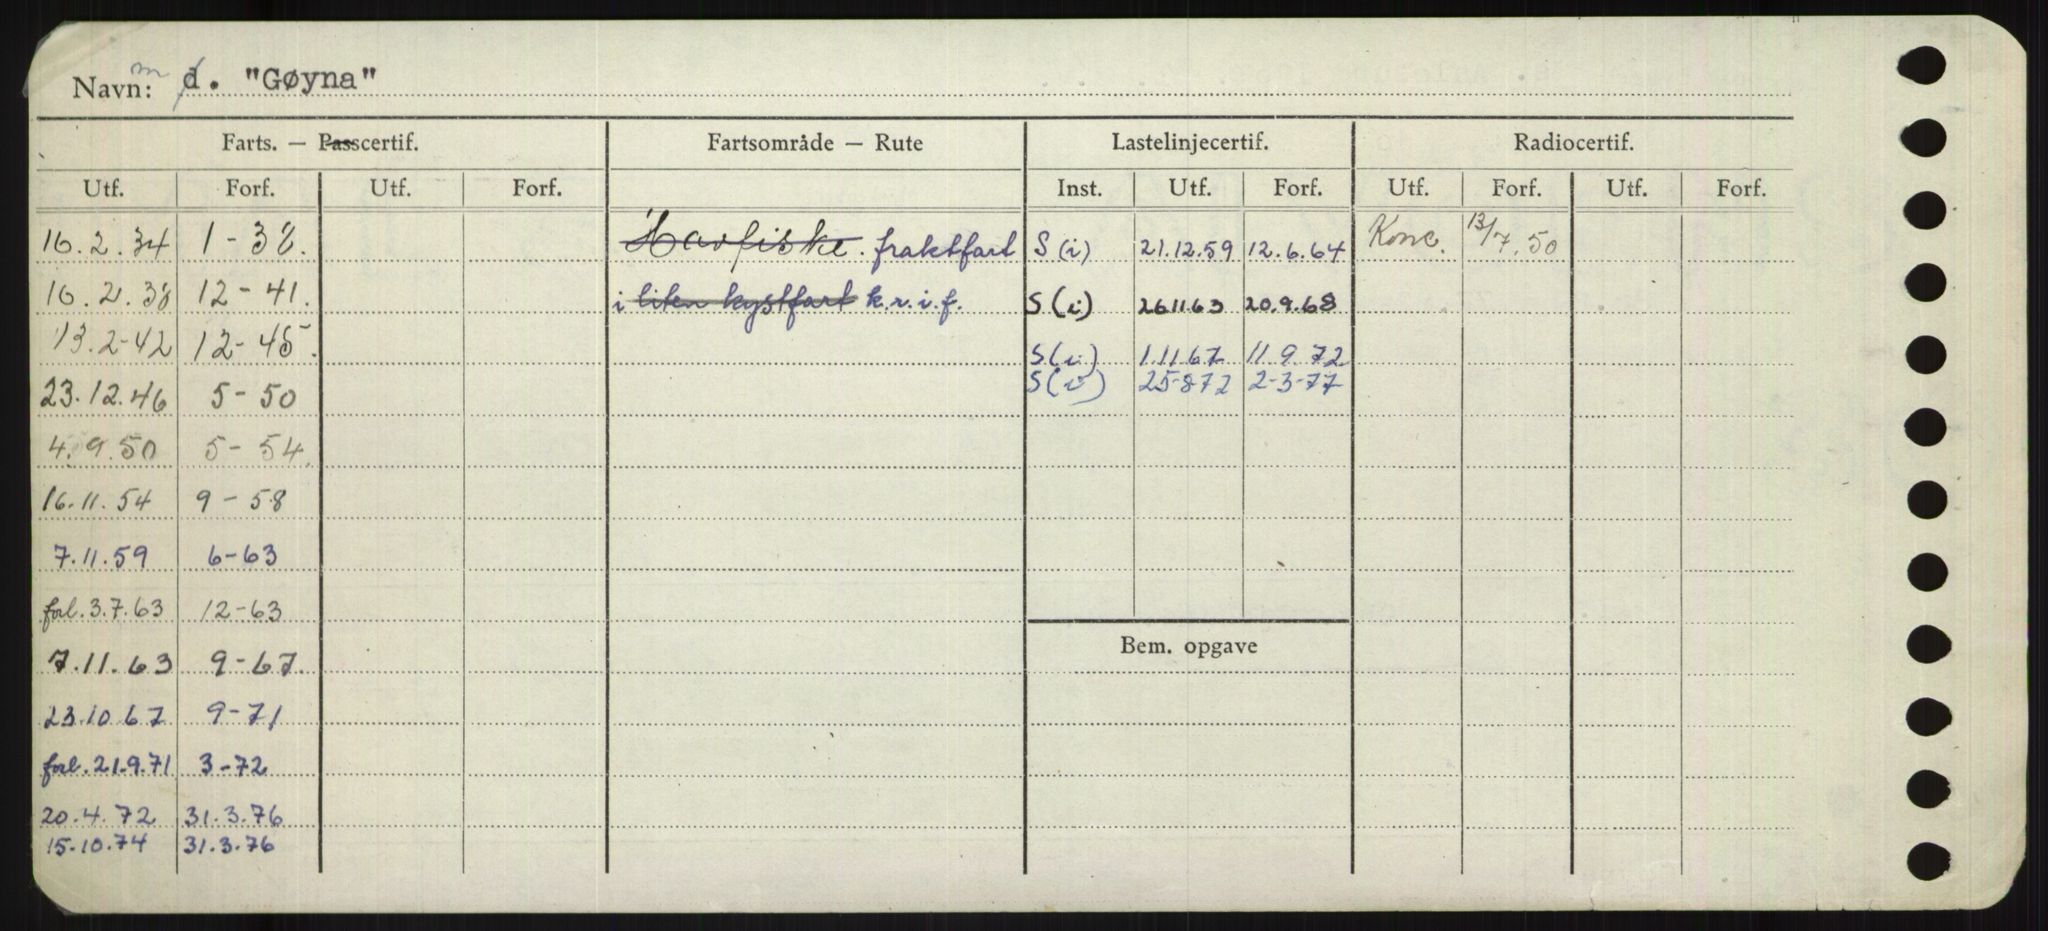 Navn: m d. "Gøyna"
Farts. — Passcertif. Fartsområde — Rute Lastelinjecertif. Radiocertif.
Utf. Forf. Utf. Forf. Inst. Utf. Forf. Utf. Forf. Utf. Forf.
16.2.34 1-38. Havfiske. fraktfart S (i) 21.12.59 12.6.64 Konc. 13/7.50
16.2.38 12-41. i liten kystfart k.r.i.f. S (i) 26.11.63 20.9.68
13.2-42 12-45. S (i) 1.11.67 11.9.72
23.12.46 5-50 S (i) 25-8-72 2-3-77
4.9.50 5-54.
16.11.54 9-58
7.11.59 6-63
forl. 3.7.63 12-63
7.11.63 9-67.
23.10.67 9-71
forl. 21.9.71 3-72
20.4.72 31.3.76
15.10.74 31.3.76
Bem. opgave